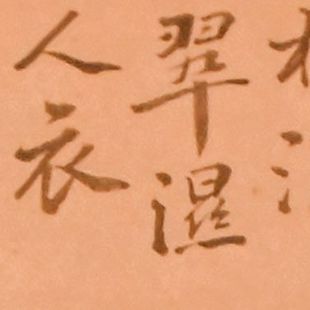 翠湿
人衣